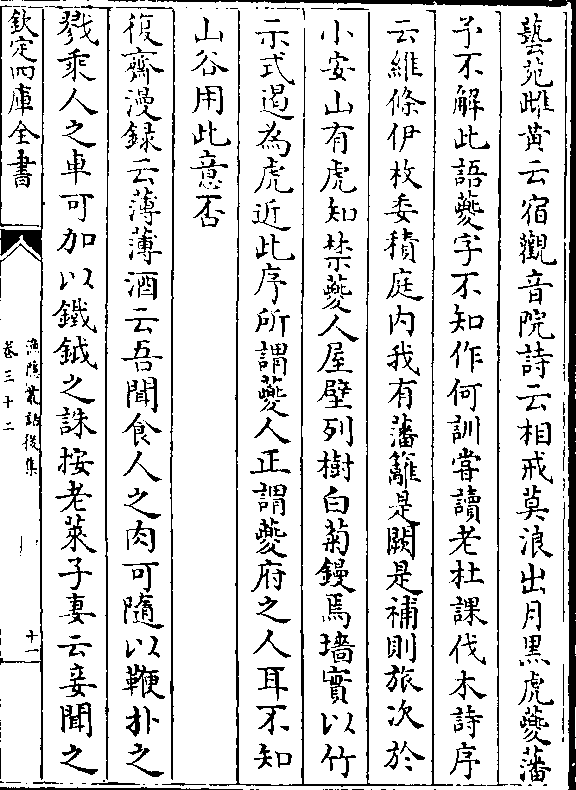 藝苑雌黄云宿觀音院詩云相戒莫浪出月黒虎夔藩
予不解此語夔字不知作何訓嘗讀老杜課伐木詩序
云維條伊枚委積庭内我有藩籬是闕是補則旅次於
小安山有虎知禁夔人屋壁列樹白菊鏝焉墻實以竹
示式遏為虎近此序所謂夔人正謂夔府之人耳不知
山谷用此意否
復齋漫録云薄薄酒云吾聞食人之肉可隨以鞭扑之
戮乘人之車可加以鐵鉞之誅按老萊子妻云妾聞之
欽定四庫全書
漁隱叢話後集
卷三十二
十一